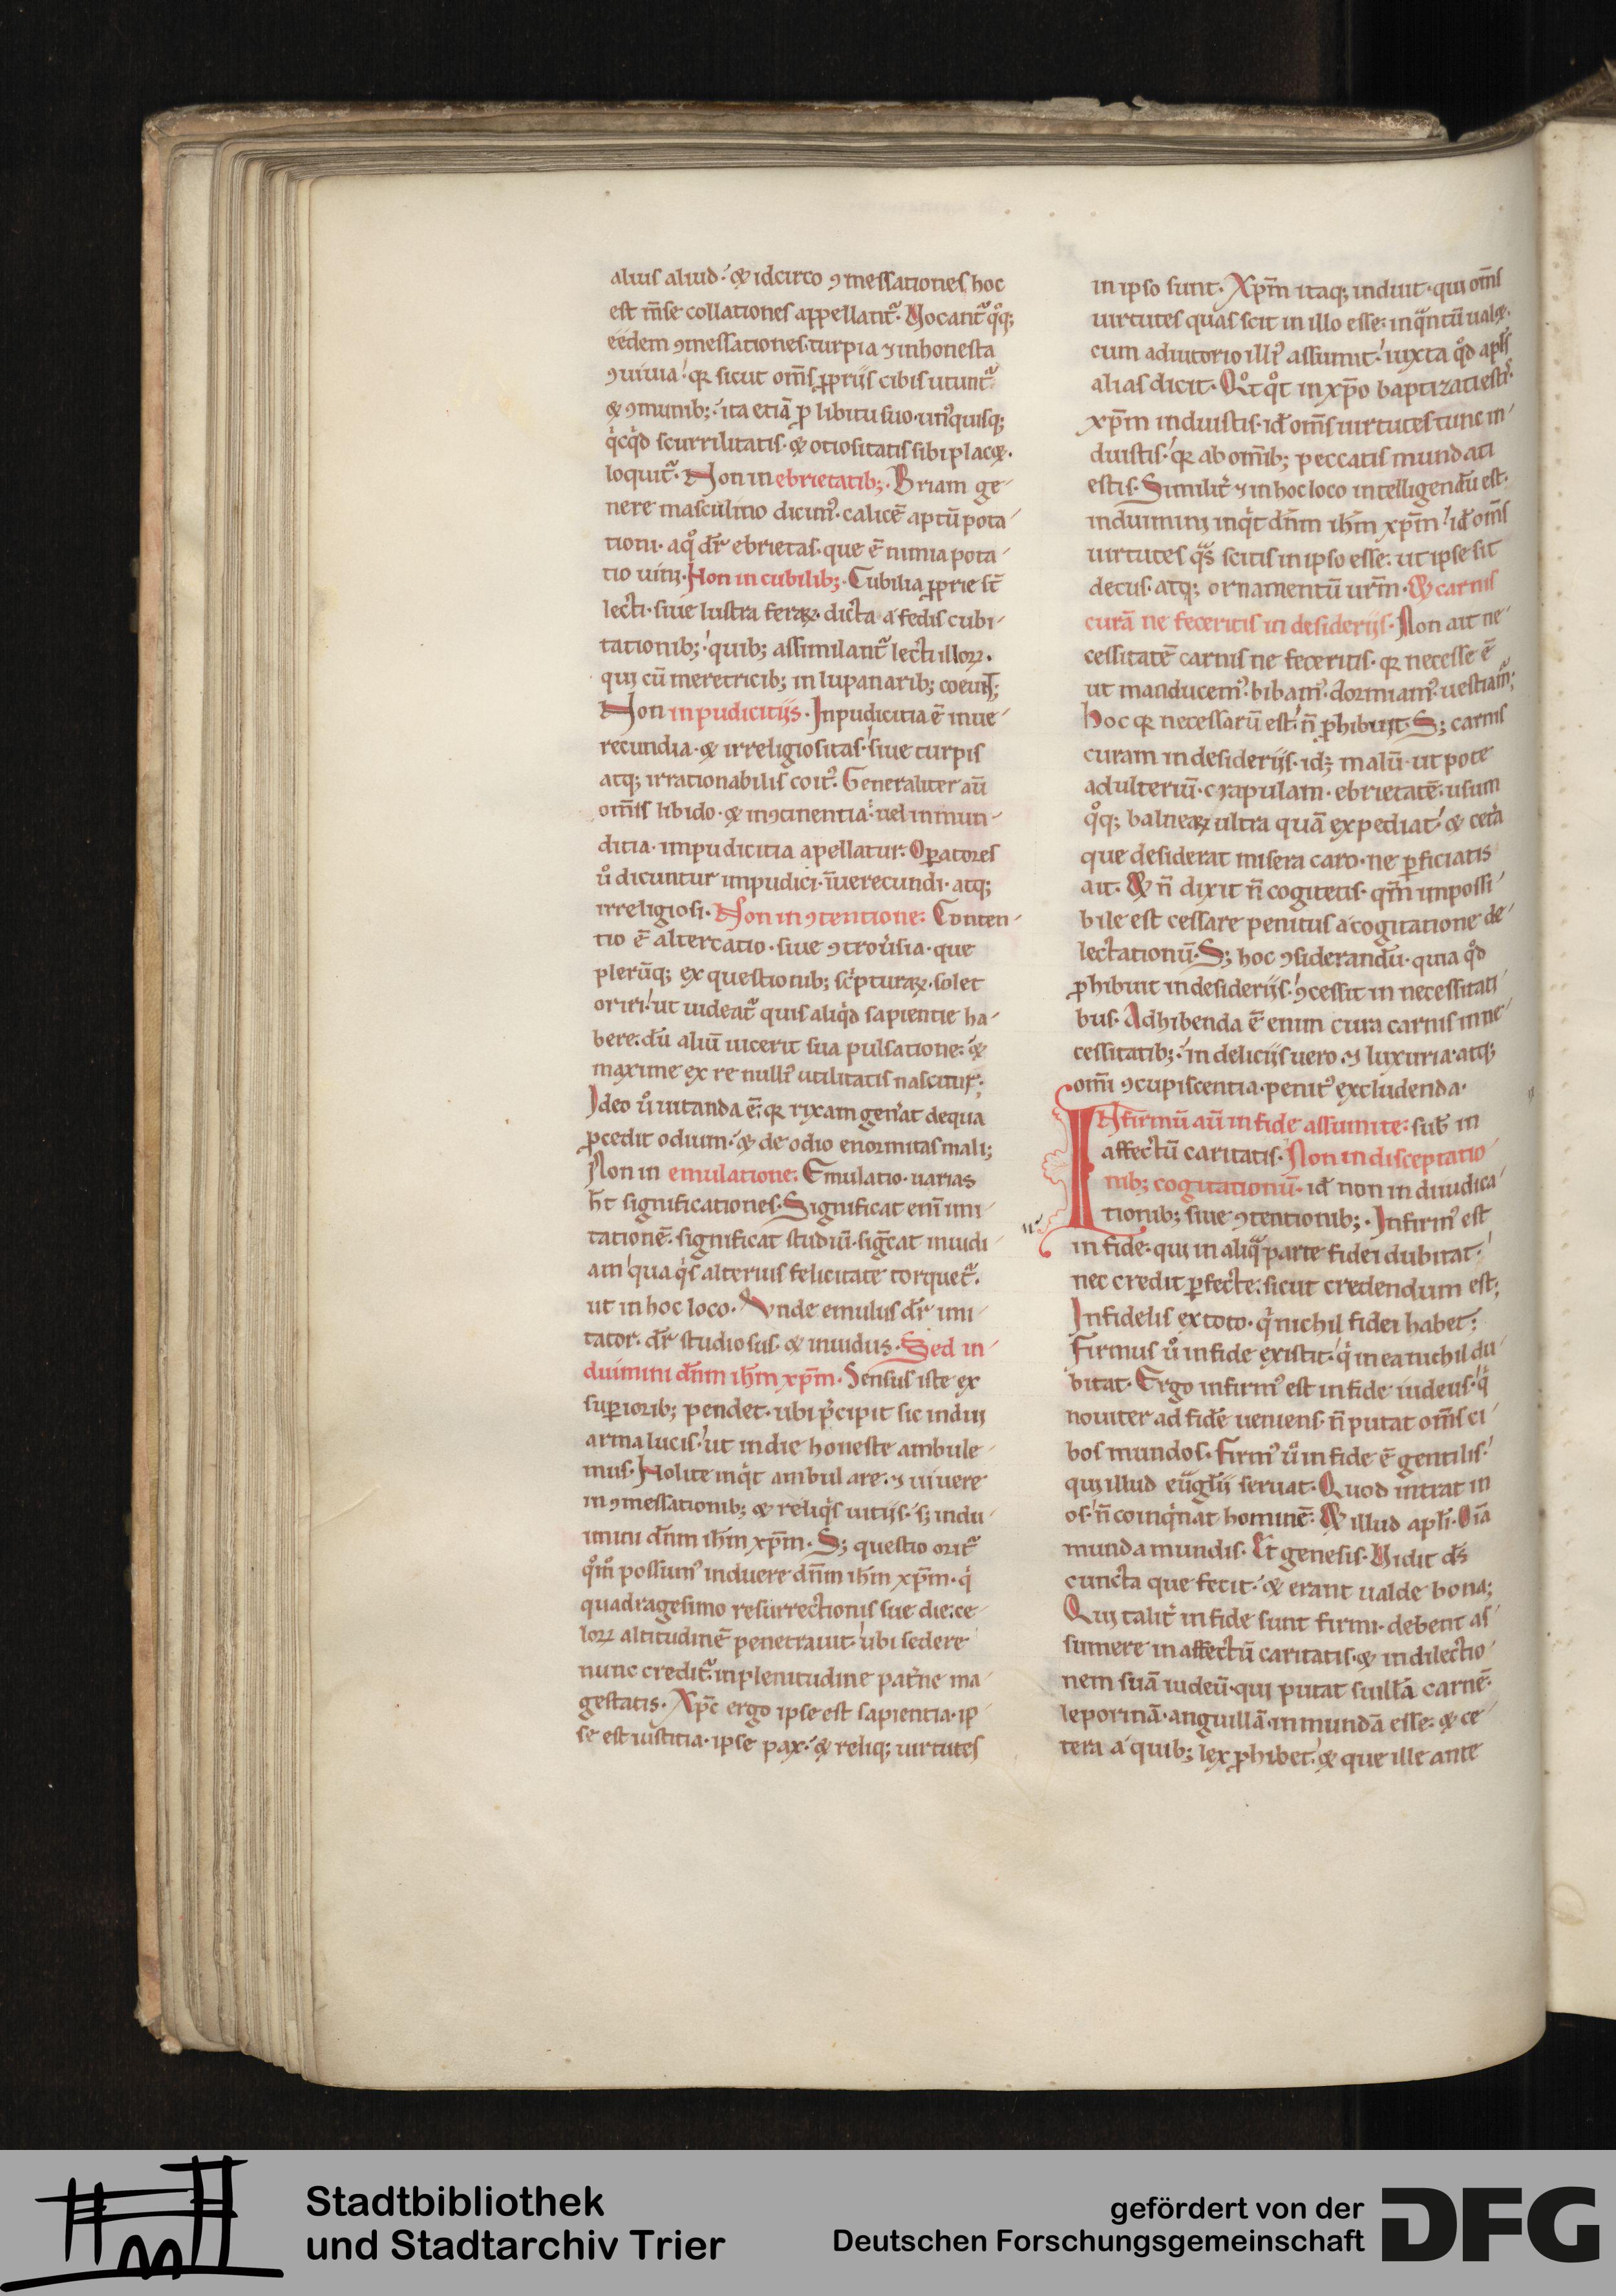 alius aliud. & idcirco ꝯmessationes hoc
est m̄se collationes appellant᷑. Vocant᷑ qͦq;
eedem ꝯmessationes turpia ⁊ inhonesta
ꝯuiuia. qꝛ sicut om̄s ꝓprijs cibis utunt᷑
& ꝯmunib;. ita etiā ꝓ libitu suo unꝰquisq;
qͥcqͥd scurrilitatis & otiositatis sibi plac&.
loquit᷑. Non in ebrietatib;. Briam ge-
nere masculino dicimꝰ calicē aptū pota-
tioni. a qͦ dr̄ ebrietas. que ē nimia pota-
tio uini. Non in cubilib;. Cubilia ꝓprie st̄
lecti. siue lustra feraꝝ. dicta a fedis cubi-
tationib;. quib; assimilant᷑ lecti illoꝝ.
qui cū meretricib; in lupanarib; coeunt;
Non inpudicitijs. Inpudicitia ē inue-
recundia. & irreligiositas. siue turpis
atq; irrationabilis coitꝰ. Generaliter aū
om̄is libido. & inꝯtinentia. uel inmun-
ditia. impudicitia apellatur. Oꝑatores
ů dicuntur impudici. īuerecundi. atq;
irreligiosi. Non in ꝯtentione. Conten-
tio ē altercatio. siue ꝯtrou͛sia. que
plerūq; ex questionib; sc͛pturaꝝ. solet
oriri. ut uideat᷑ quis aliqͥd sapientie ha-
bere. dū aliū uicerit sua pulsatione. &
maxime ex re nulliꝰ utilitatis nascitur.
Ideo ů uitanda ē. qꝛ rixam gen͛at de qua
ꝓcedit odium. & de odio enormitas mali;
Non in emulatione. Emulatio uarias
h̄t significationes. Significat eni̅ imi-
tationē. significat studiū. sig̅cat inuidi-
am qua qͥs alterius felicitate torquet᷑.
ut in hoc loco. Vnde emulus dr̄ imi-
tator. dr̄ studiosus. & inuidus. Sed in-
duimini dn̄m ih̄m xp̄m. Sensus iste ex
suꝑiorib; pendet. ubi p͛cipit sic indui
arma lucis. ut in die honeste ambule-
mus. Nolite inqͥt ambulare. ⁊ uiuere
in ꝯmessationib; & reliqͥs uitijs. s; indu-
imini dn̄m ih̄m xp̄m. S; questio orit᷑
qͦm̊ possumꝰ induere dn̄m ih̄m xp̄m. qͥ
quadragesimo resurrectionis sue die. ce-
loꝝ altitudinē penetrauit. ubi sedere
nunc credit᷑. in plenitudine pat͛ne ma-
gestatis. Xp̄c ergo ipse est sapientia. ip-
se est iustitia. ipse pax. & reliq; uirtutes
in ipso sunt. Xp̄m itaq; induit. qui om̄s
uirtutes quas scit in illo esse. in qͣntū ual&.
cum adiutorio illiꝰ assumit. iuxta qͦd apl̄s
alias dicit. Qͦt qͦt in xp̄o baptizati estis.
xp̄m induistis. id̄ om̄s uirtutes tunc in-
duistis. qꝛ ab om̄ib; peccatis mundati
estis. Similit͛ ⁊ in hoc loco intelligendū est.
induimini inqͥt dn̄m ih̄m xp̄m. id̄ om̄s
uirtutes qͣs scitis in ipso esse. ut ipse sit
decus. atq; ornamentū ur̄m. & carnis
curā ne feceritis in desiderijs. Non ait ne-
cessitatē carnis ne feceritis. qꝛ necesse ē
ut manducemꝰ. bibamꝰ. dormiamꝰ. uestiam᷑;
hoc qꝛ necessariū est. n̄ ꝓhibuit. S; carnis
curam in desiderijs. id; malū. ut pote
adulteriū. crapulam. ebrietatē. usum
qͦq; balneaꝝ ultra quā expediat. & cet͛a
que desiderat misera caro. ne ꝑficiatis
ait. & n̄ dixit n̄ cogitetis. qm̄ impossi-
bile est cessare penitus a cogitatione de-
lectationū. S; hoc ꝯsiderandū. quia qͦd
ꝓhibuit in desiderijs. ꝯcessit in necessitati-
bus. Adhibenda ē enim cura carnis in ne-
cessitatib;. in delicijs uero. ⁊ luxuria. atq;
om̄i ꝯcupiscentia. penitꝰ excludenda.
INfirmū aū in fide assumite. sub̄ in
affectū caritatis. Non in disceptatio-
nib; cogitationū. id̄ non in diiudica-
tionib; siue ꝯtentionib;. Infirmꝰ est
in fide. qui in aliqͣ parte fidei dubitat.
nec credit ꝑfecte. sicut credendum est;
Infidelis ex toto. qͥ nichil fidei habet.
Firmus ů in fide existit. qͥ in ea nichil du-
bitat. Ergo infirmꝰ est in fide iudeus. qͥ
nouiter ad fidē ueniens. n̄ putat om̄s ci-
bos mundos. Firmꝰ ů in fide ē gentilis.
qui illud eu̅gl̄ii seruat. Quod intrat in
os. n̄ coinqͥnat hominē. & illud apl̄i. Oīa
munda mundis. Et genesis. Vidit ds̄
cuncta que fecit. & erant ualde bona;
Qui talit͛ in fide sunt firmi. debent as-
sumere in affectū caritatis. & in dilectio-
nem suā iudeū. qui putat suillā carnē.
leporinā. anguillā. inmundā esse. & ce-
tera a quib; lex ꝓhibet. & que ille ante
Stadtbibliothek
und Stadtarchiv Trier
gefördert von der
Deutschen Forschungsgemeinschaft
DFG